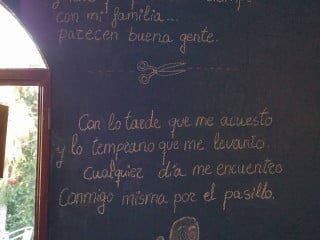 con mi familia...
parecen buena gente.
Con lo tarde que me acuesto
y lo temprano que me levanto.
Cualquier día me encuentro
Conmigo misma por el pasillo.